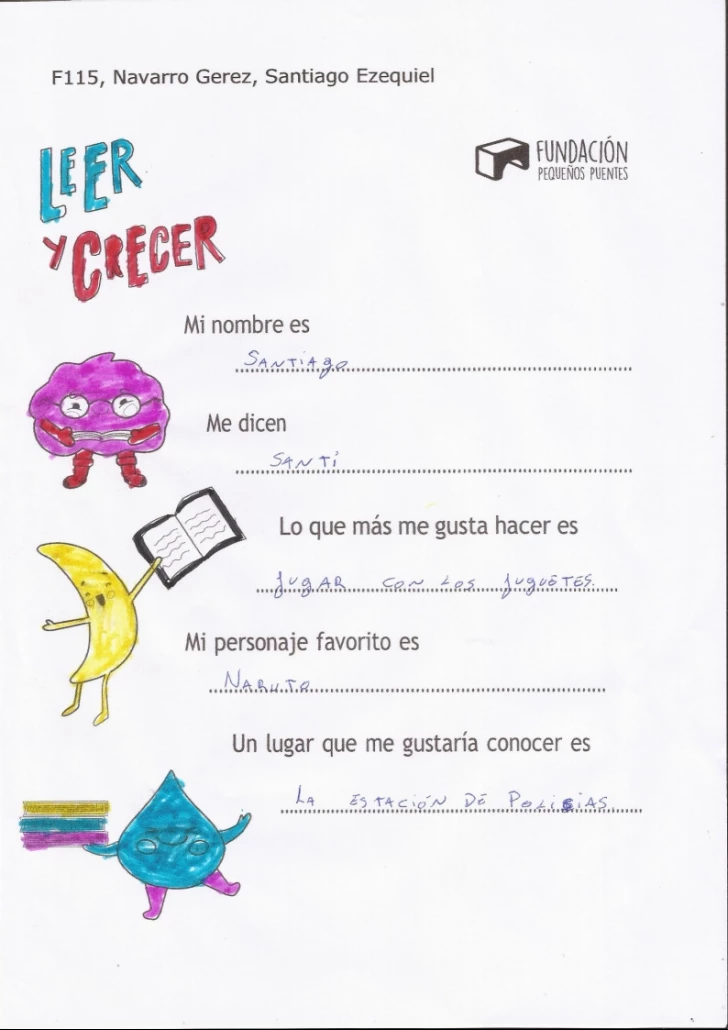 F115, Navarro Gerez, Santiago Ezequiel
LEER
Y CRECER
FUNDACIÓN
PEQUEÑOS PUENTES
Mi nombre es
SANTiAgo
Me dicen
SANTi
Lo que más me gusta hacer es
JugAR CON LOS JuguETES.
Mi personaje favorito es
NARUTO
Un lugar que me gustaría conocer es
LA ESTACIÓN DE POLiCiAS